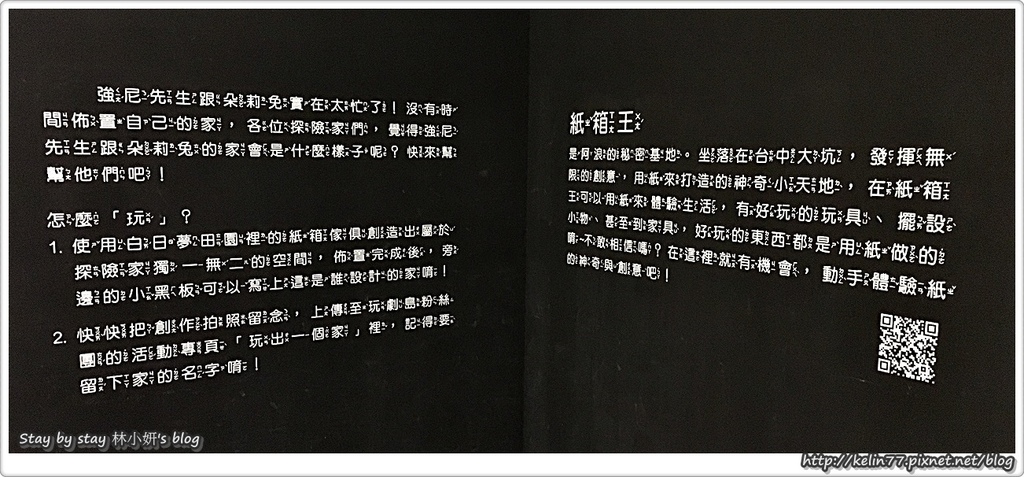 強尼先生跟朵莉兔實在太忙了！沒有時
間佈置自己的家，各位探險家們，覺得強尼
先生跟朵莉兔的家會是什麼樣子呢？快來幫
幫他們吧！
怎麼「玩」？
1. 使用白日夢田園裡的紙箱傢俱創造出屬於
探險家獨一無二的空間，佈置完成後，旁
邊的小黑板可以寫上這是誰設計的家唷！
2. 快快把創作拍照留念，上傳至玩劇島粉絲
團的活動專頁「玩出一個家」裡，記得要
留下家的名字唷！
紙箱王
是阿浪的秘密基地。坐落在台中大坑，發揮無
限的創意，用紙來打造的神奇小天地，在紙箱
王可以用紙來體驗生活，有好玩的玩具、擺設
小物、甚至到家具，好玩的東西都是用紙做的
唷~不敢相信嗎？在這裡就有機會，動手體驗紙
的神奇與創意吧！
Stay by stay 林小妍's blog
http://kelin77.pixnet.net/blog